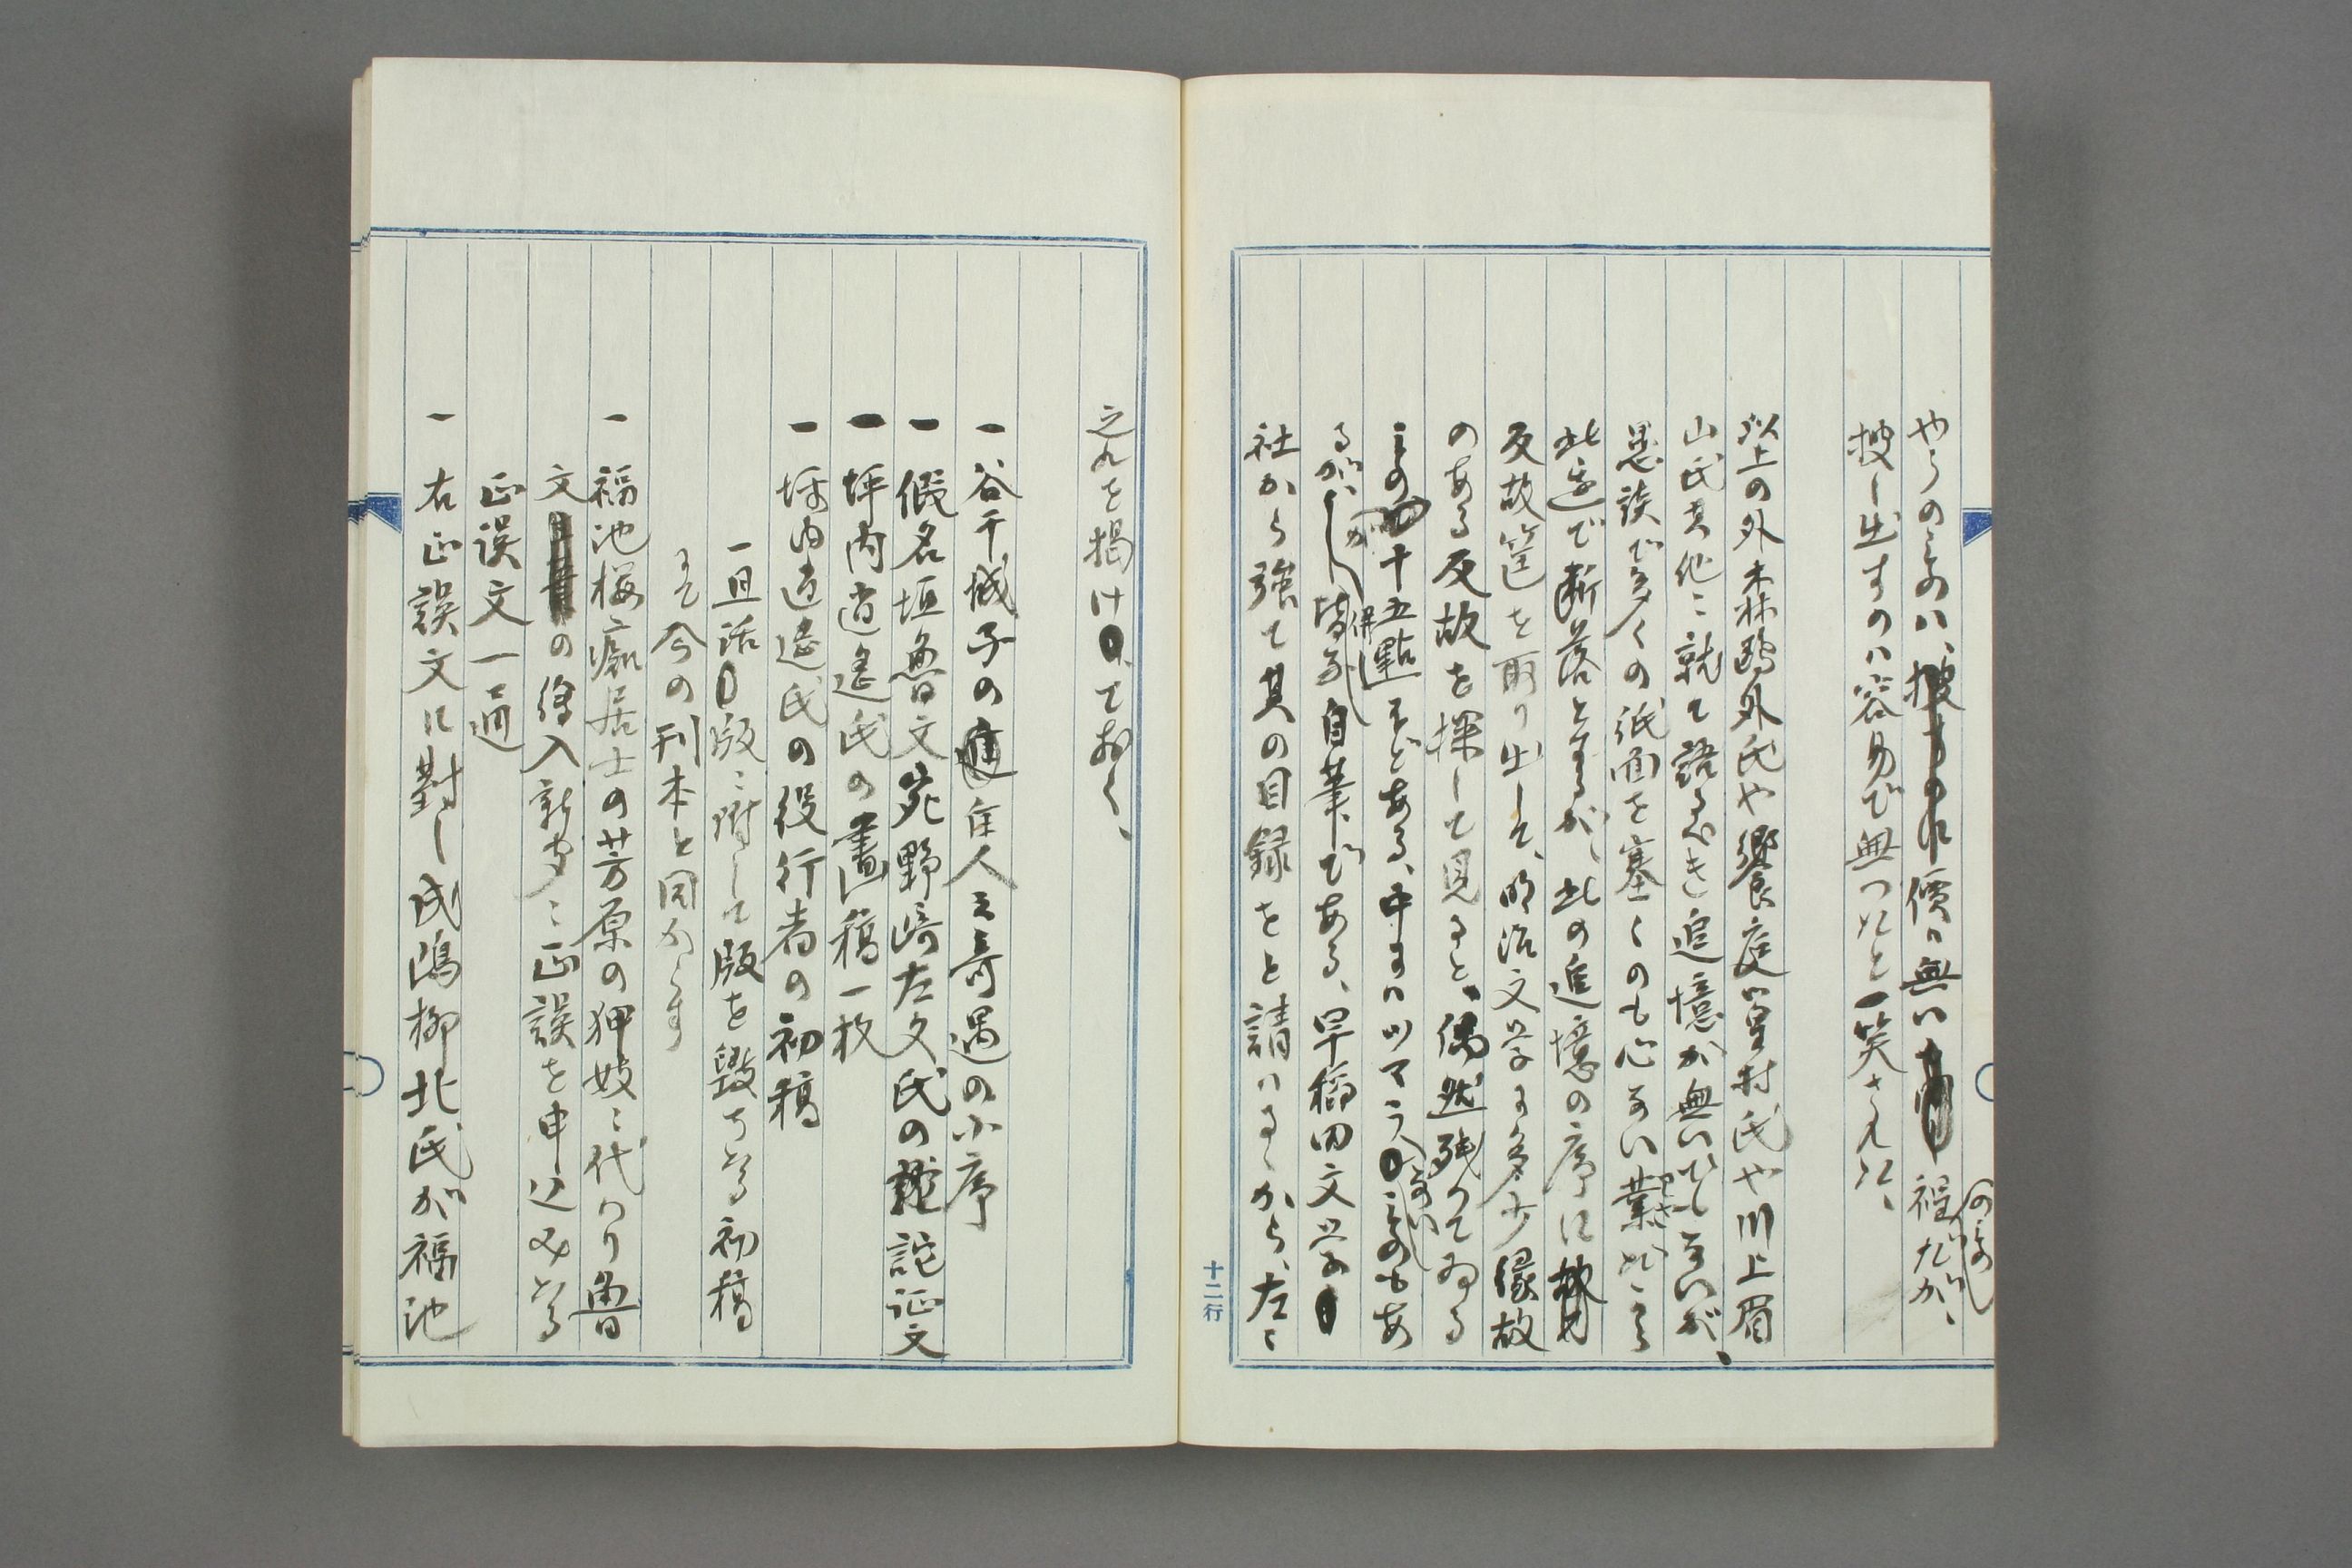 やうのものハ、價ハ無い程のものだが、
捜し出すのハ容易で無つたと一笑された、
以上の外森鴎外氏や饗庭篁村氏や川上眉
山氏其他に就て語るべき追憶が無いでもないが、
愚談で多くの紙面を塞ぐのも心ない業だから
此辺で断落とするが、此の追憶の序に
反故筐を取り出して、明治文学に多少縁故
のある反故を探して見ると、偶然残つてゐる
ものが十五點ほどある、中にハツマラないものもあ
るが、併し皆な自筆である、早稲田文学
社から強て其の目録をと請ハるゝから、左に
十二行
之れを掲けておく、
一 谷干城子の佳人之奇遇の小序
一 假名垣魯文宛野崎左文氏の詫証文
一 坪内逍遥氏の畫稿一枚
一 坪内逍遥氏の役行者の初稿
一旦活版に附して版を毀ちたる初稿
にて今の刊本と同からす
一 福池桜痴居士の芳原の狎妓に代わり魯
文の假入新聞に正誤を申込みたる
正誤文一通
一 右正誤文に對し成島柳北氏が福池